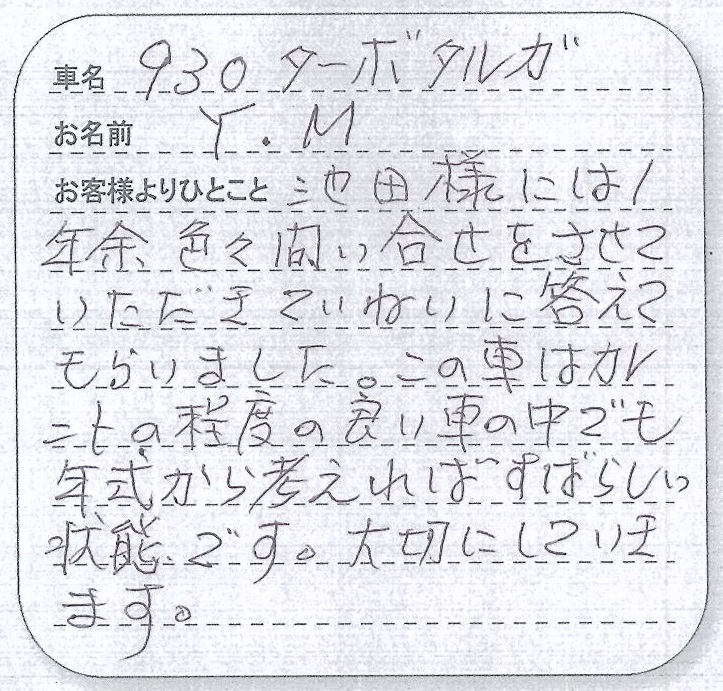 車名 930 ターボタルガ
お名前 Y.M
お客様よりひとこと 池田様には1
年余色々問い合せをさせて
いただきていねいに答えて
もらいました。この車はカレ
ントの程度の良い車の中でも
年式から考えればすばらしい
状能です。大切にしていき
ます。